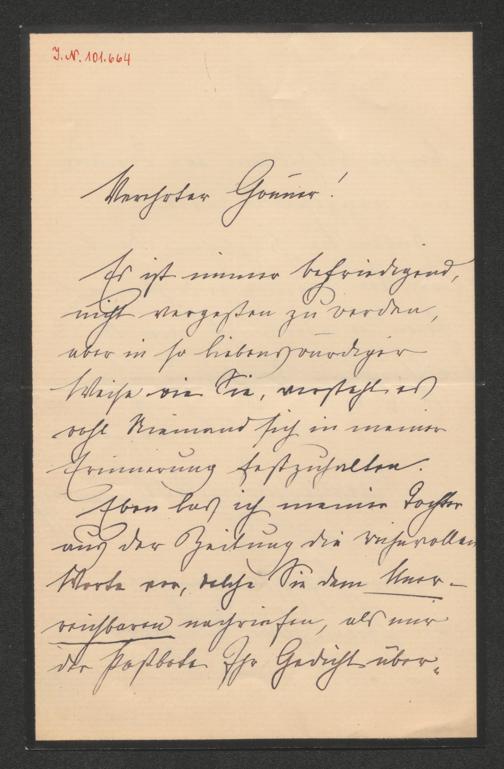 J. N. 101.664
Verehrter Gönner!
Es ist immer befriedigend,
nicht vergeßen zu werden,
aber in so liebenswürdiger
Weise wie Sie, versteht es
wohl Niemand sich in meiner
Erinnerung festzuhalten.
Eben las ich meiner Tochter
aus der Zeitung die weihevollen
Worte vor, welche Sie dem Uner-
reichbaren nachriefen, als mir
der Postbote Ihr Gedicht über„